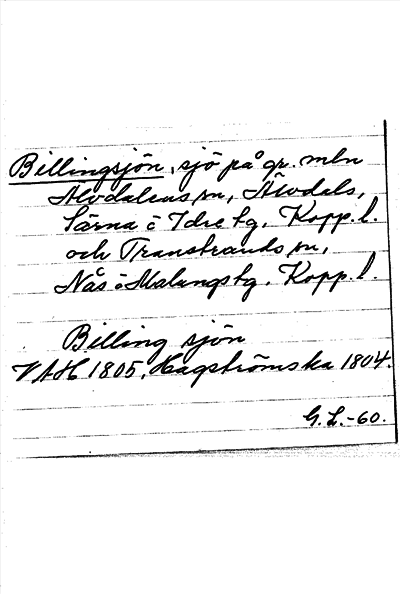 Billingsjön, sjö på gr. mln
Älvdalens sn, Älvdals,
Särna o Idre tg, Kopp. l.
och Transtrands sn,
Nås o Malungs tg. Kopp. l.
Billing sjön
VAH 1805, Hagströmska 1804.
G. L. -60.